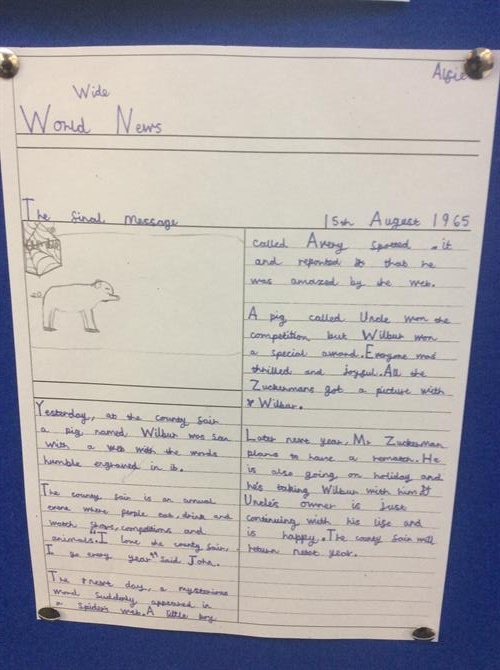 Alfie
Wide
World News
The final message
15th August 1965
humble
Yesterday, at the county fair
a pig named Wilbur was seen
with a web with the words
humble engraved in it.
The county fair is an annual
event where people eat, drink and
watch shows, compitions and
animals. "I love the county fair,
I go every year" said John.
The next day, a mysterious
word suddonly appeared in
a spider's web. A little boy
called Avery spotted it
and reported that he
was amazed by the web.
A pig called Uncle won the
competition but Wilbur won
a special award. Everyone was
thrilled and joyful. All the
Zuckermans got a picture with
Wilbur.
Later next year, Mr Zuckerman
plans to have a rematch. He
is also going on holiday and
he's taking Wilbur with him
Uncle's owner is just
continuing with his life and
is happy. The county fair will
return next year.